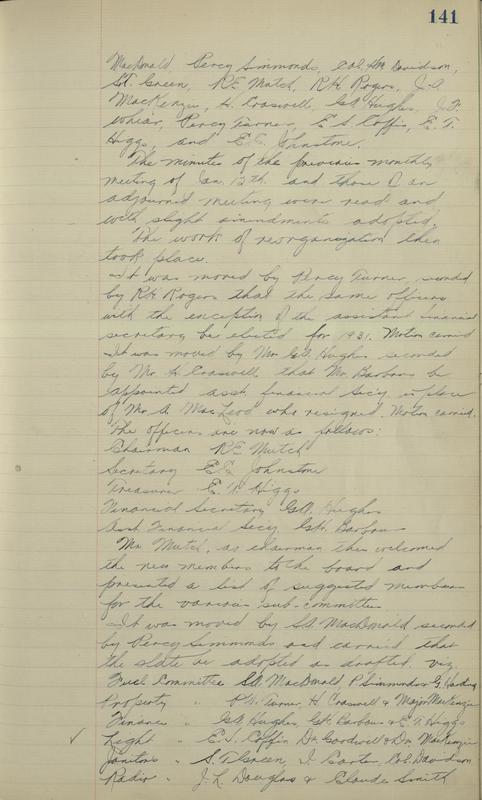 141
MacDonald, Percy Simmonds, Col. Davidson,
S.T. Green, R.E. Mutch, R.H. Rogers, J.A.
MacKenzie, H. Craswell, G.W. Hughes, J.P.
Percy Turner, E.S. Coffin, E.T.
Higgs, and E.E. Johnstone.
The minutes of the previous monthly
meeting of Jan. 12th. and those of an
adjourned meeting were read and
with slight amendments adopted.
The work of reorganization then
took place.
It was moved by Percy Turner, seconded
by R.H. Rogers that the same officers
with the exception of the assistant financial
secretary be elected for 1931. Motion carried
It was moved by Mr. G.W. Hughes seconded
by Mr. H. Craswell, that Mr. Barbour be
appointed asst. financial Secy. in place
of Mr. A. MacLeod who resigned. Motion carried.
The officers are now as follows:
Chairman R.E. Mutch
Secretary E.E. Johnstone
Treasurer E.T. Higgs
Financial Secretary G.W. Hughes
Asst. Financial Secy. G.H. Barbour
Mr. Mutch, as chairman then welcomed
the new members to the board and
presented a list of suggested members
for the various sub-committees
It was moved by MacDonald seconded
by Percy Simmonds and carried that
the slate be adopted as drafted. viz
Fuel Committee MacDonald P. Simmonds & G. Harding
Property " P.W. Turner, H. Craswell & Major MacKenzie
Finance " G.W. Hughes, G.H. Barbour & E.T. Higgs
✓ Light " E.S. Coffin Dr. Gardwell & Dr. MacKenzie
Janitors " S.T. Green, J. Carter, Col. Davidson
Radio " J.L. Douglas & Claude Smith